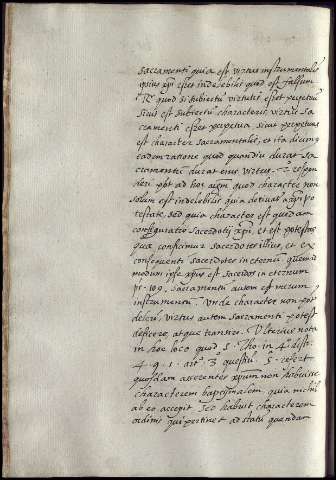 sacramenti quia est virtus instrumentalis
ipsius xpi esset indelebilis quod est falsum
R. quod si subiectū virtutis esset perpetuū
sicut est subiectū characteris, virtus sa
cramenti esset perpetua sicut perpetuus
est character sacramentalis, et ita dicim9
eadem ratione quod quandiu durat sa
cramentū durat eius virtus. 2.º respon
deri pōt ad hoc argm quod character non
solum est indelebilis quia derivat a xpi po
testate, sed quia character est quedam
configuratio sacerdotij xpi, et est potestas
qua conficimur sacerdotes illius, et ex
consequenti sacerdotes in eternū quemad
modum ipse xpus est sacerdos in eternum
ps. 109. sacramentū autem est merum
instrumentū. Vnde character non pōt
deleri, virtus autem sacramenti potest
deficere, atque transire. Vlterius nota
in hoc loco quod S. Tho. in 4.º dist.
4. q. 1. art.º 3.º questiū. 5. refert
quosdam asserentes xpum non habuisse
characterem baptismalem, quia nichil
ab eo accepit sed habuit characterem
ordinis qui pertinet ad statū quendam